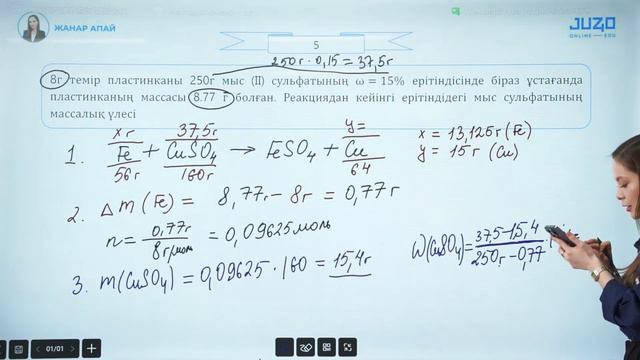 ЖАНАР АПАЙ
JUZ40
ONLINE EDU
5
250г · 0,15 = 37,5г
8г темір пластинканы 250г мыс (II) сульфатының ω = 15% ерітіндісінде біраз ұстағанда
пластинканың массасы 8.77 г болған. Реакциядан кейінгі ерітіндідегі мыс сульфатының
массалық үлесі
xг 37,5г y=
1. Fe + CuSO4 → FeSO4 + Cu
56г 160г 64
x = 13,125г (Fe)
y = 15г (Cu)
2. Δm (Fe) = 8,77г - 8г = 0,77г
n = 0,77г / 8г/моль = 0,09625 моль
3. m(CuSO4) = 0,09625 · 160 = 15,4г
W(CuSO4) = 37,5 - 15,4 / 250г - 0,77
01/01